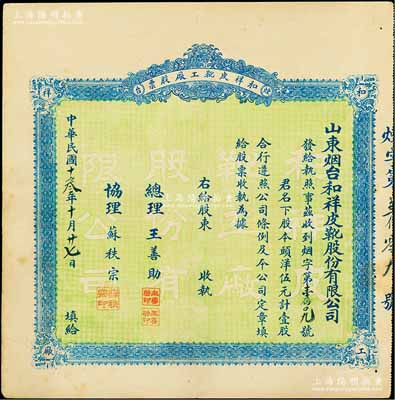 上海阳明拍卖
烟台和祥皮靴工厰股票
和
祥
工
厰
山東烟台和祥皮靴股份有限公司
發給執照事茲收到烟字第 號
君名下股本頭洋伍元計壹股
合行遵照公司條例及本公司定章填
給股票收執為據
右給股東 收執
總理 王善助
協理 蘇秩宗
中華民國十叁年十月廿七日 填給
股份有限公司
上海陽明拍賣